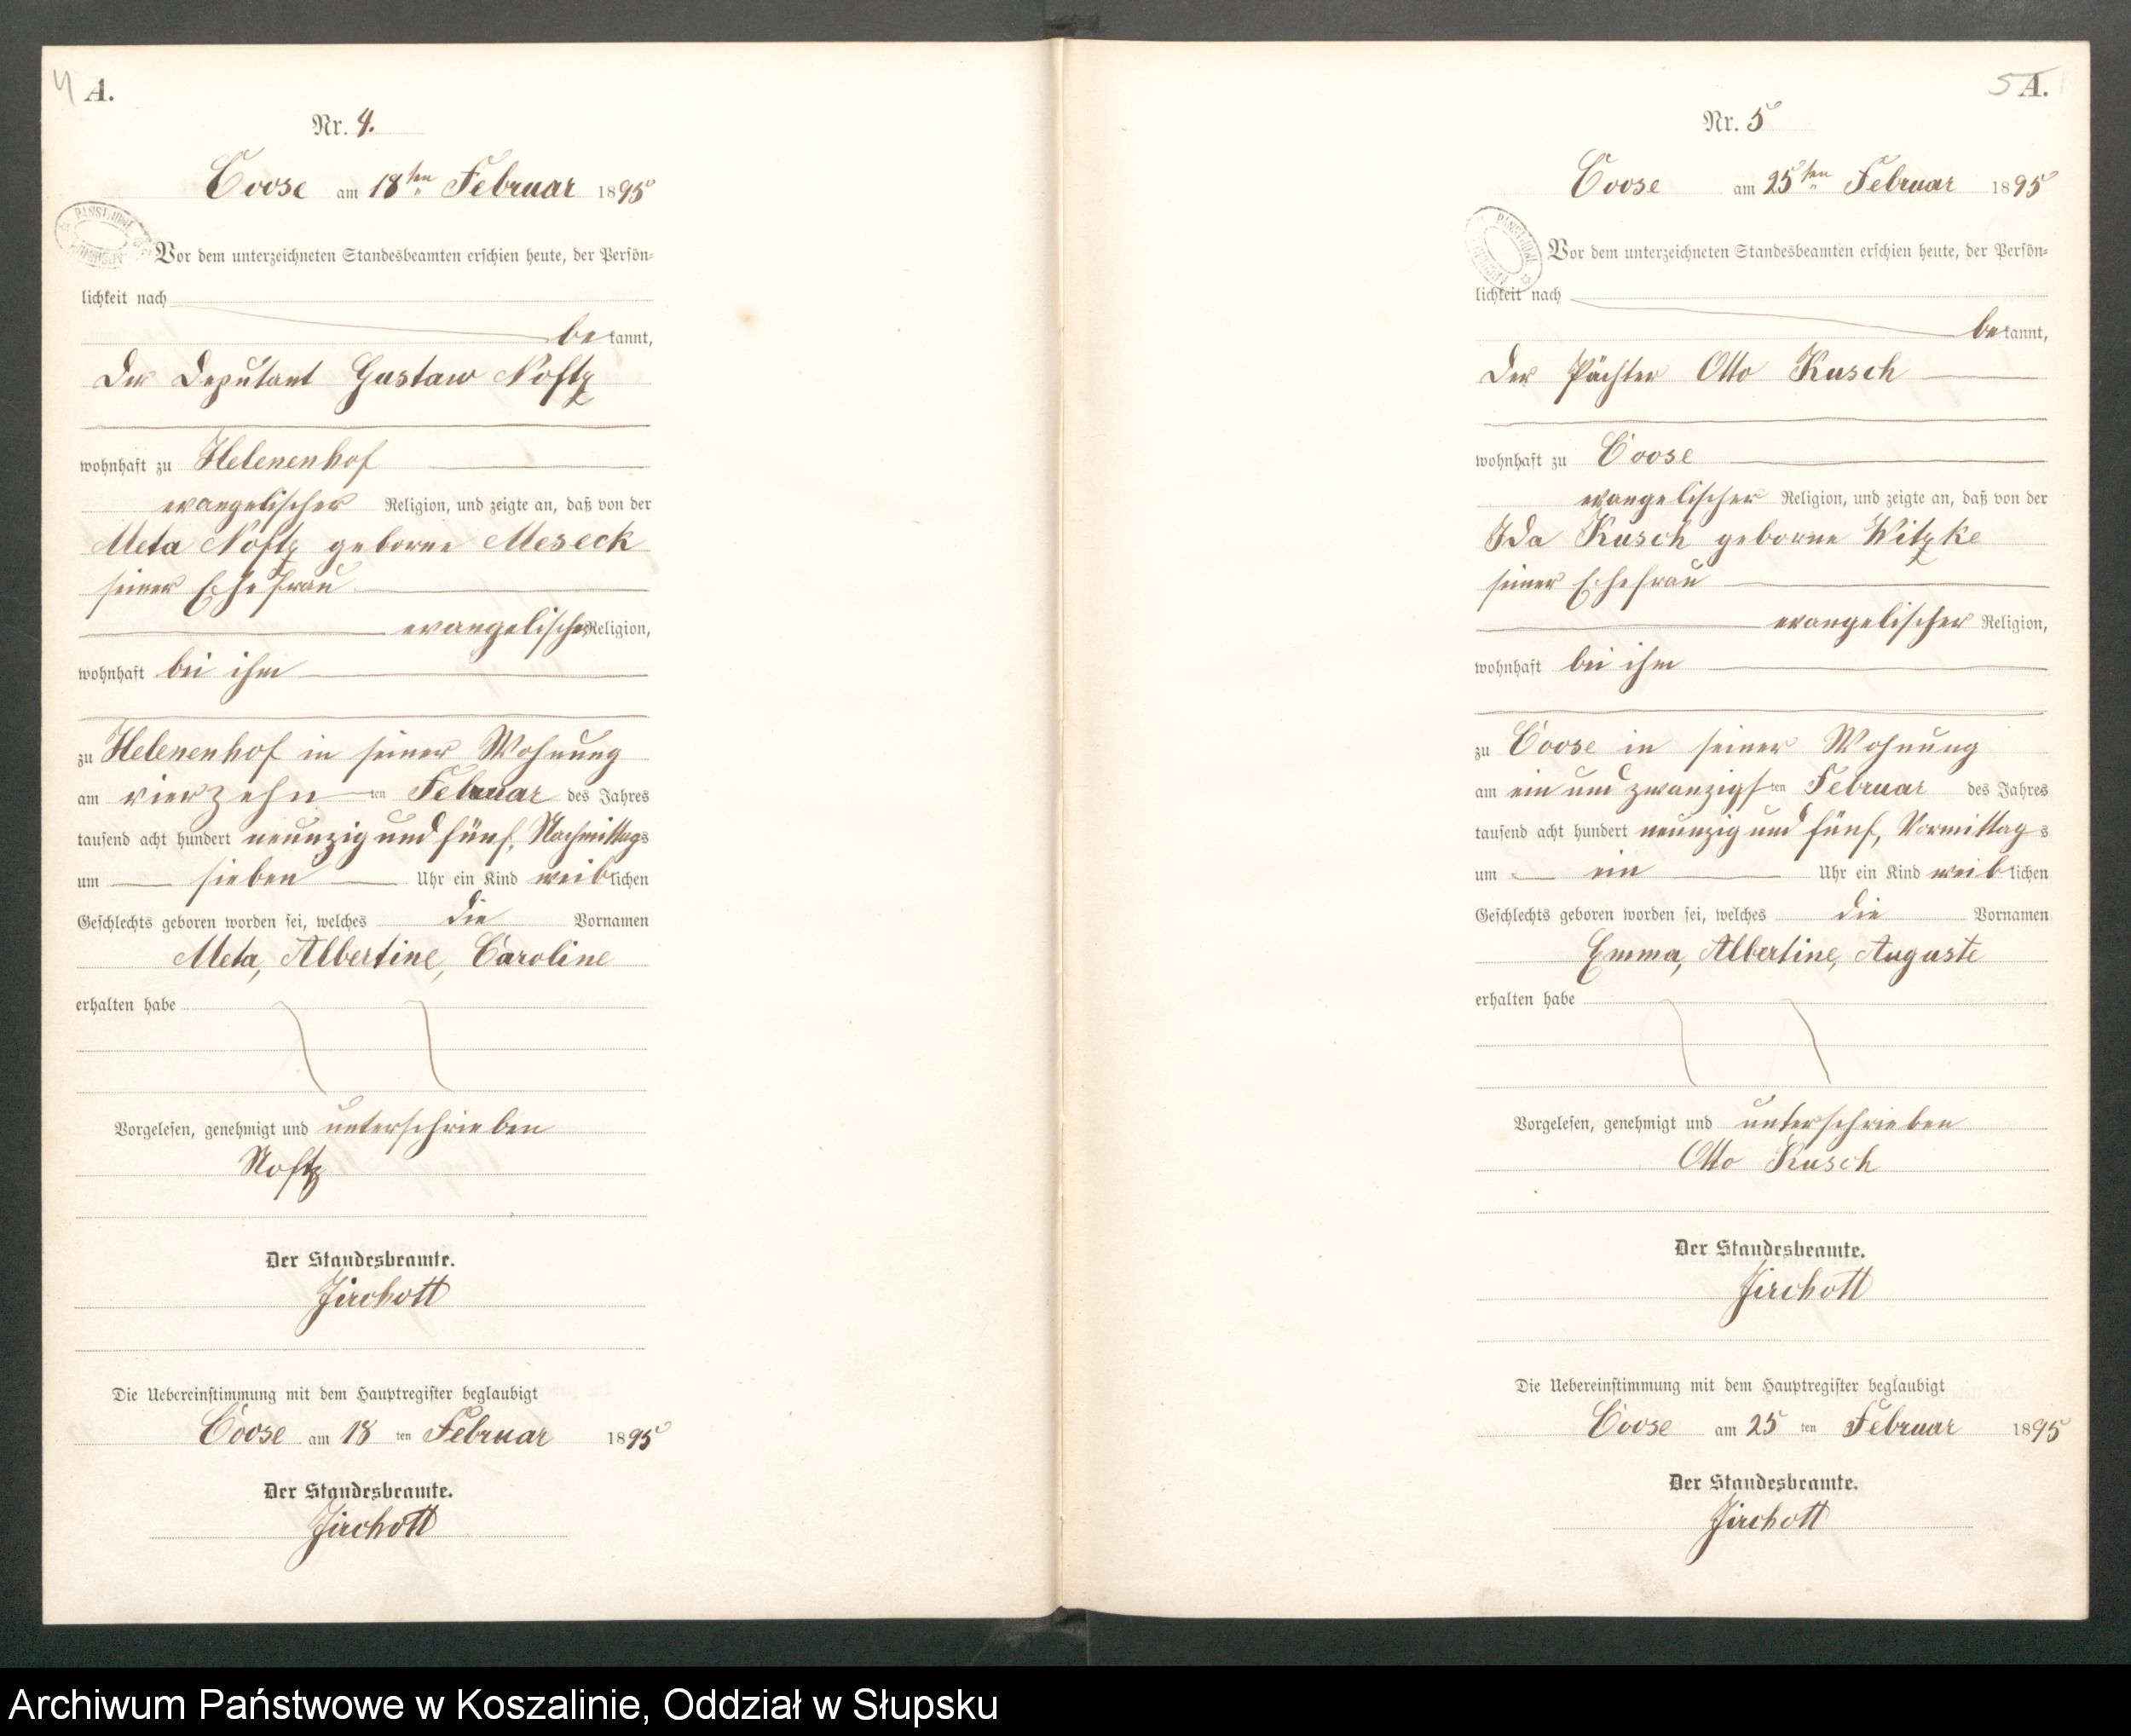 4 A.
Nr. 4.
Coose am 18ten Februar 1895
PAŃSTWOWE
Vor dem unterzeichneten Standesbeamten erschien heute, der Persön-
lichkeit nach
bekannt,
der Deputant Gustaw Noftz
wohnhaft zu Helenenhof
evangelischer Religion, und zeigte an, daß von der
Meta Noftz geborne Meseck
seiner Ehefrau
evangelischer Religion,
wohnhaft bei ihm
zu Helenenhof in seiner Wohnung
am vierzehn ten Februar des Jahres
tausend acht hundert neunzig und fünf, Nachmittags
um sieben Uhr ein Kind weiblichen
Geschlechts geboren worden sei, welches die Vornamen
Meta, Albertine, Caroline
erhalten habe
Vorgelesen, genehmigt und unterschrieben
Noftz
Der Standesbeamte.
Jirchott
Die Uebereinstimmung mit dem Hauptregister beglaubigt
Coose am 18 ten Februar 1895
Der Standesbeamte.
Jirchott
5 A.
Nr. 5
Coose am 25ten Februar 1895
PAŃSTWOWE
Vor dem unterzeichneten Standesbeamten erschien heute, der Persön-
lichkeit nach
bekannt,
der Pächter Otto Kusch
wohnhaft zu Coose
evangelischer Religion, und zeigte an, daß von der
Ida Kusch geborne Witzke
seiner Ehefrau
evangelischer Religion,
wohnhaft bei ihm
zu Coose in seiner Wohnung
am ein und zwanzigsten Februar des Jahres
tausend acht hundert neunzig und fünf, Vormittags
um ein Uhr ein Kind weiblichen
Geschlechts geboren worden sei, welches die Vornamen
Emma, Albertine, Auguste
erhalten habe
Vorgelesen, genehmigt und unterschrieben
Otto Kusch
Der Standesbeamte.
Jirchott
Die Uebereinstimmung mit dem Hauptregister beglaubigt
Coose am 25 ten Februar 1895
Der Standesbeamte.
Jirchott
Archiwum Państwowe w Koszalinie, Oddział w Słupsku